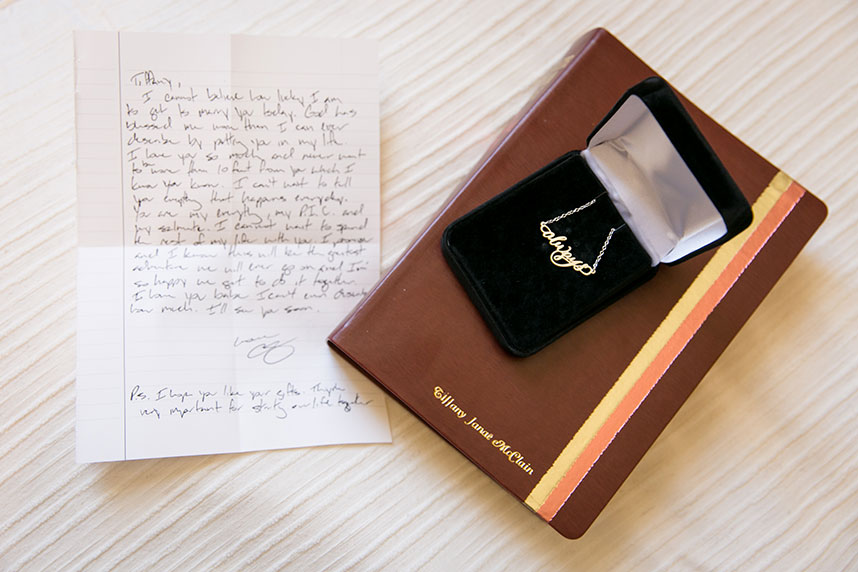 Tiffany,
I cannot believe how lucky I am
to get to marry you today. God has
blessed me more than I can ever
describe by putting you in my life.
I love you so much and never want
to be more then 10 feet from you which I
know you know. I can't wait to tell
you everything that happens everyday.
You are my everything, my P.I.C. and
my soulmate. I cannot wait to spend
the rest of my life with you I promise
and I know this will be the greatest
adventure we will ever go on and I'm
so happy we get to do it together.
I love you babe I can't even describe
how much. I'll see you soon.
Love
P.S. I hope you like your gifts. They're
very important for starting our life together
always
Tiffany Janae McClain